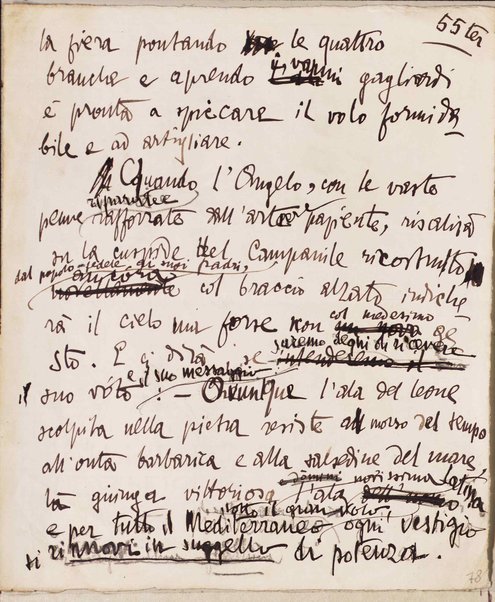 55 ter
la fiera pontando le quattro
branche e aprendo i vanni gagliardi
è pronta a spiccare il volo formida
bile e ad artigliare.
Quando l'Angelo, con le vaste
riparate
penne rafforzate dall'arte sapiente, risalirà
su la cuspide del Campanile ricostrutto
dal popolo fedele ai suoi padri,
ancora
novellamente col braccio alzato indiche
rà il cielo ma forse non col medesimo ge
un novo
sto. E ci dirà se saremo degni di ricevere
intenderemo il
e il suo messaggio
il suo vóto: — Ovunque l'ala del leone
scolpita nella pietra resiste al morso del tempo
all'onta barbarica e alla salsedine del mare
là giunga vittoriosa l'ala novissima latina
domini
sotto il quinto volo
e per tutto il Mediterraneo ogni vestigio
si rinnovi in suggello di potenza.
78